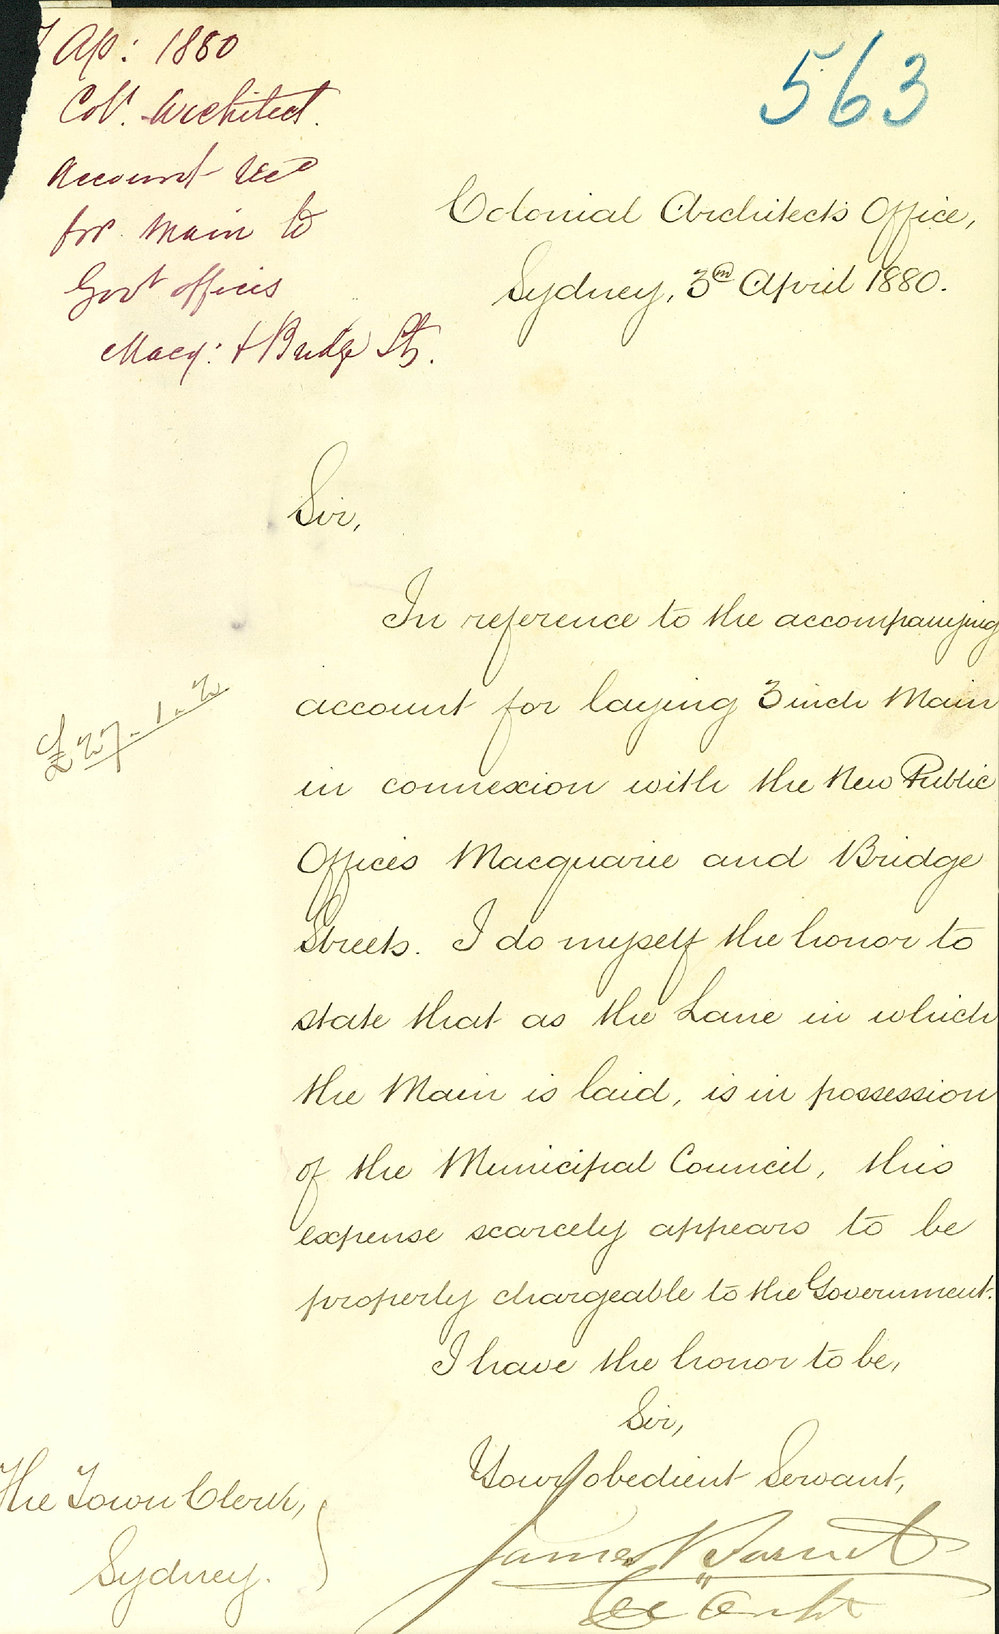 7 Ap: 1880
Col. Architect.
Account recd
for Main to
Govt offices
Macq: & Bridge Sts.
563
Colonial Architect's Office,
Sydney, 3rd April 1880.
Sir,
In reference to the accompanying
account for laying 3 inch Main
£27.1.2
in connexion with the New Public
Offices Macquarie and Bridge
Streets. I do myself the honor to
state that as the Lane in which
the Main is laid, is in possession
of the Municipal Council, this
expense scarcely appears to be
properly chargeable to the Government.
I have the honor to be,
Sir,
Your obedient Servant,
James Barnet
Col Archt
The Town Clerk,
Sydney.